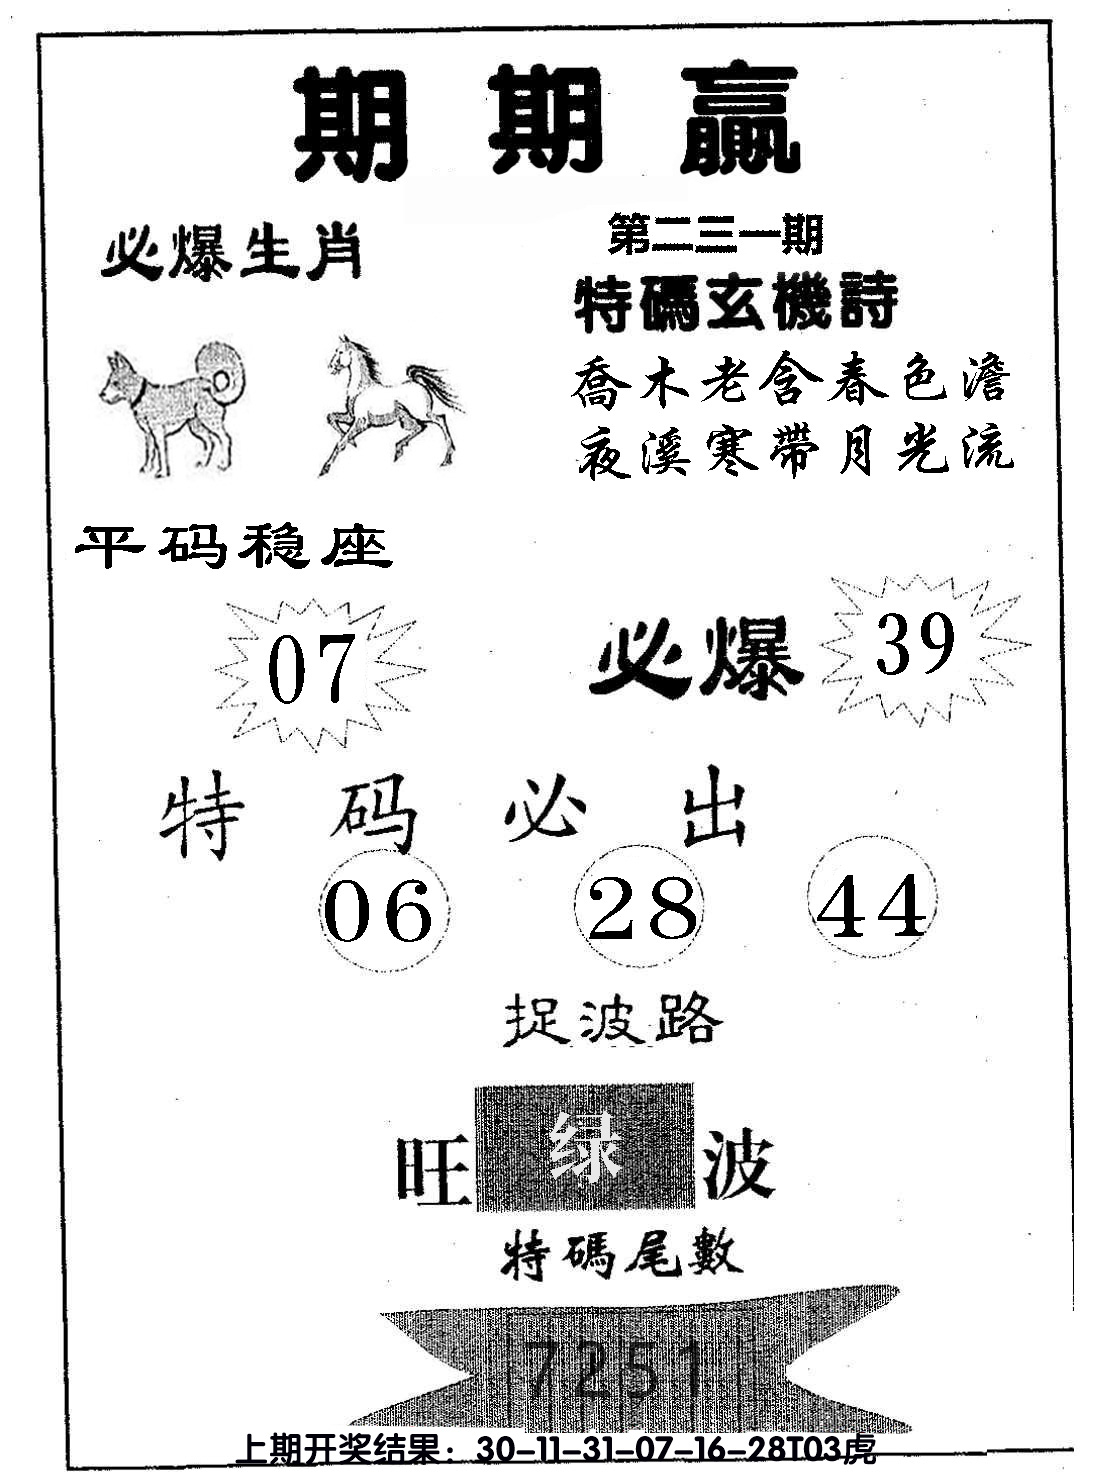 期期赢
必爆生肖
第二三一期
特碼玄機詩
喬木老含春色澹
夜溪寒帶月光流
平码稳座
07
必爆
39
特码必出
06 28 44
捉波路
旺 绿 波
特碼尾數
7251
上期开奖结果：30-11-31-07-16-28T03虎